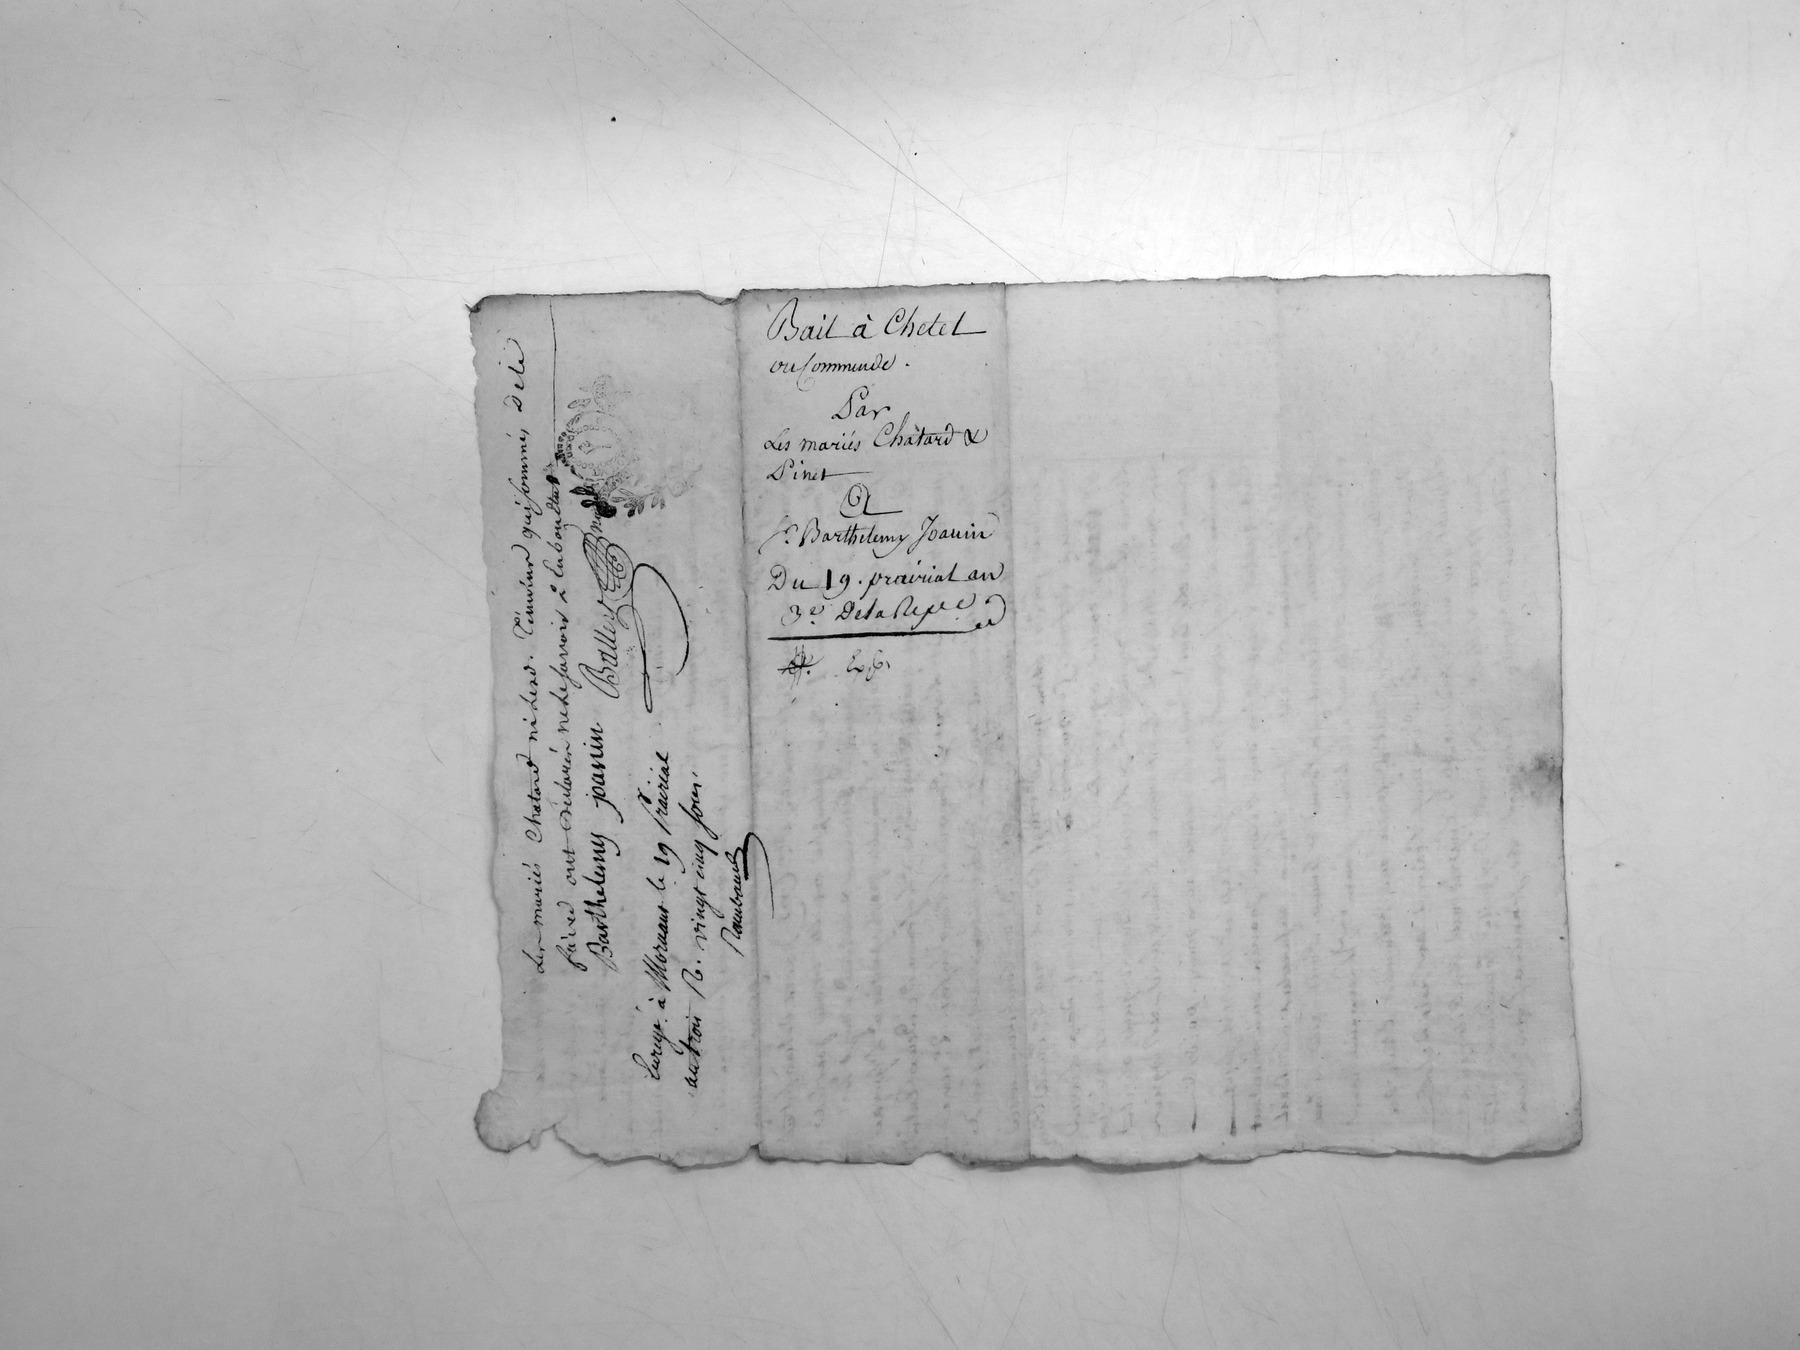 Bail à Chetel
ou Commende.
Par
Les mariés Chatard &
Pinet
A
Sr. Barthelemy Joanin
Du 19. prairial an
3e. De la Repee.
Exp.
Les mariés Chatard ni led. témoins qui sommés de le
faire ont déclarés ne le savoir
Barthelemy joanin Balley
Enregé. à Mornant le 19 Prairial
an trois R. vingt cinq sous